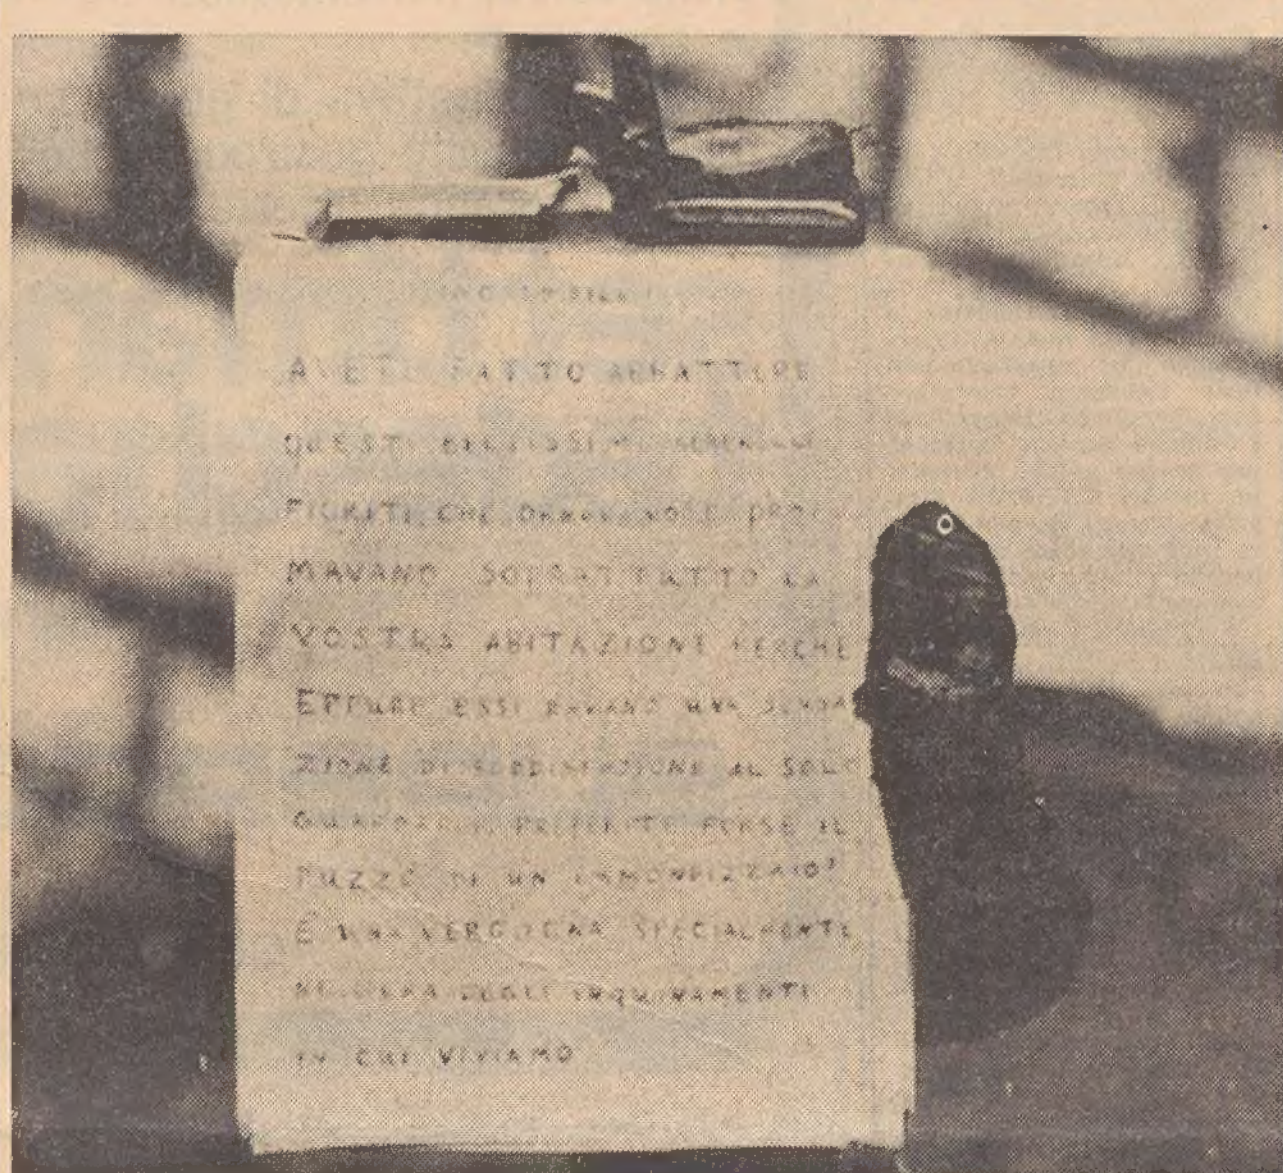 AVETE FATTO ABBATTERE
QUESTI BELLISSIMI
FIORITI CHE ORNAVANO E PROFU
MAVANO SOPRATTUTTO LA
VOSTRA ABITAZIONE PERCHÈ
EPPURE ESSI DAVANO UNA SENSA
ZIONE DI SODDISFAZIONE AL SOLO
PREFERITE FORSE IL
PUZZO DI UN IMMONDIZZAIO?
È UNA VERGOGNA SPECIALMENTE
NELL'ERA DEGLI INQUINAMENTI
IN CUI VIVIAMO